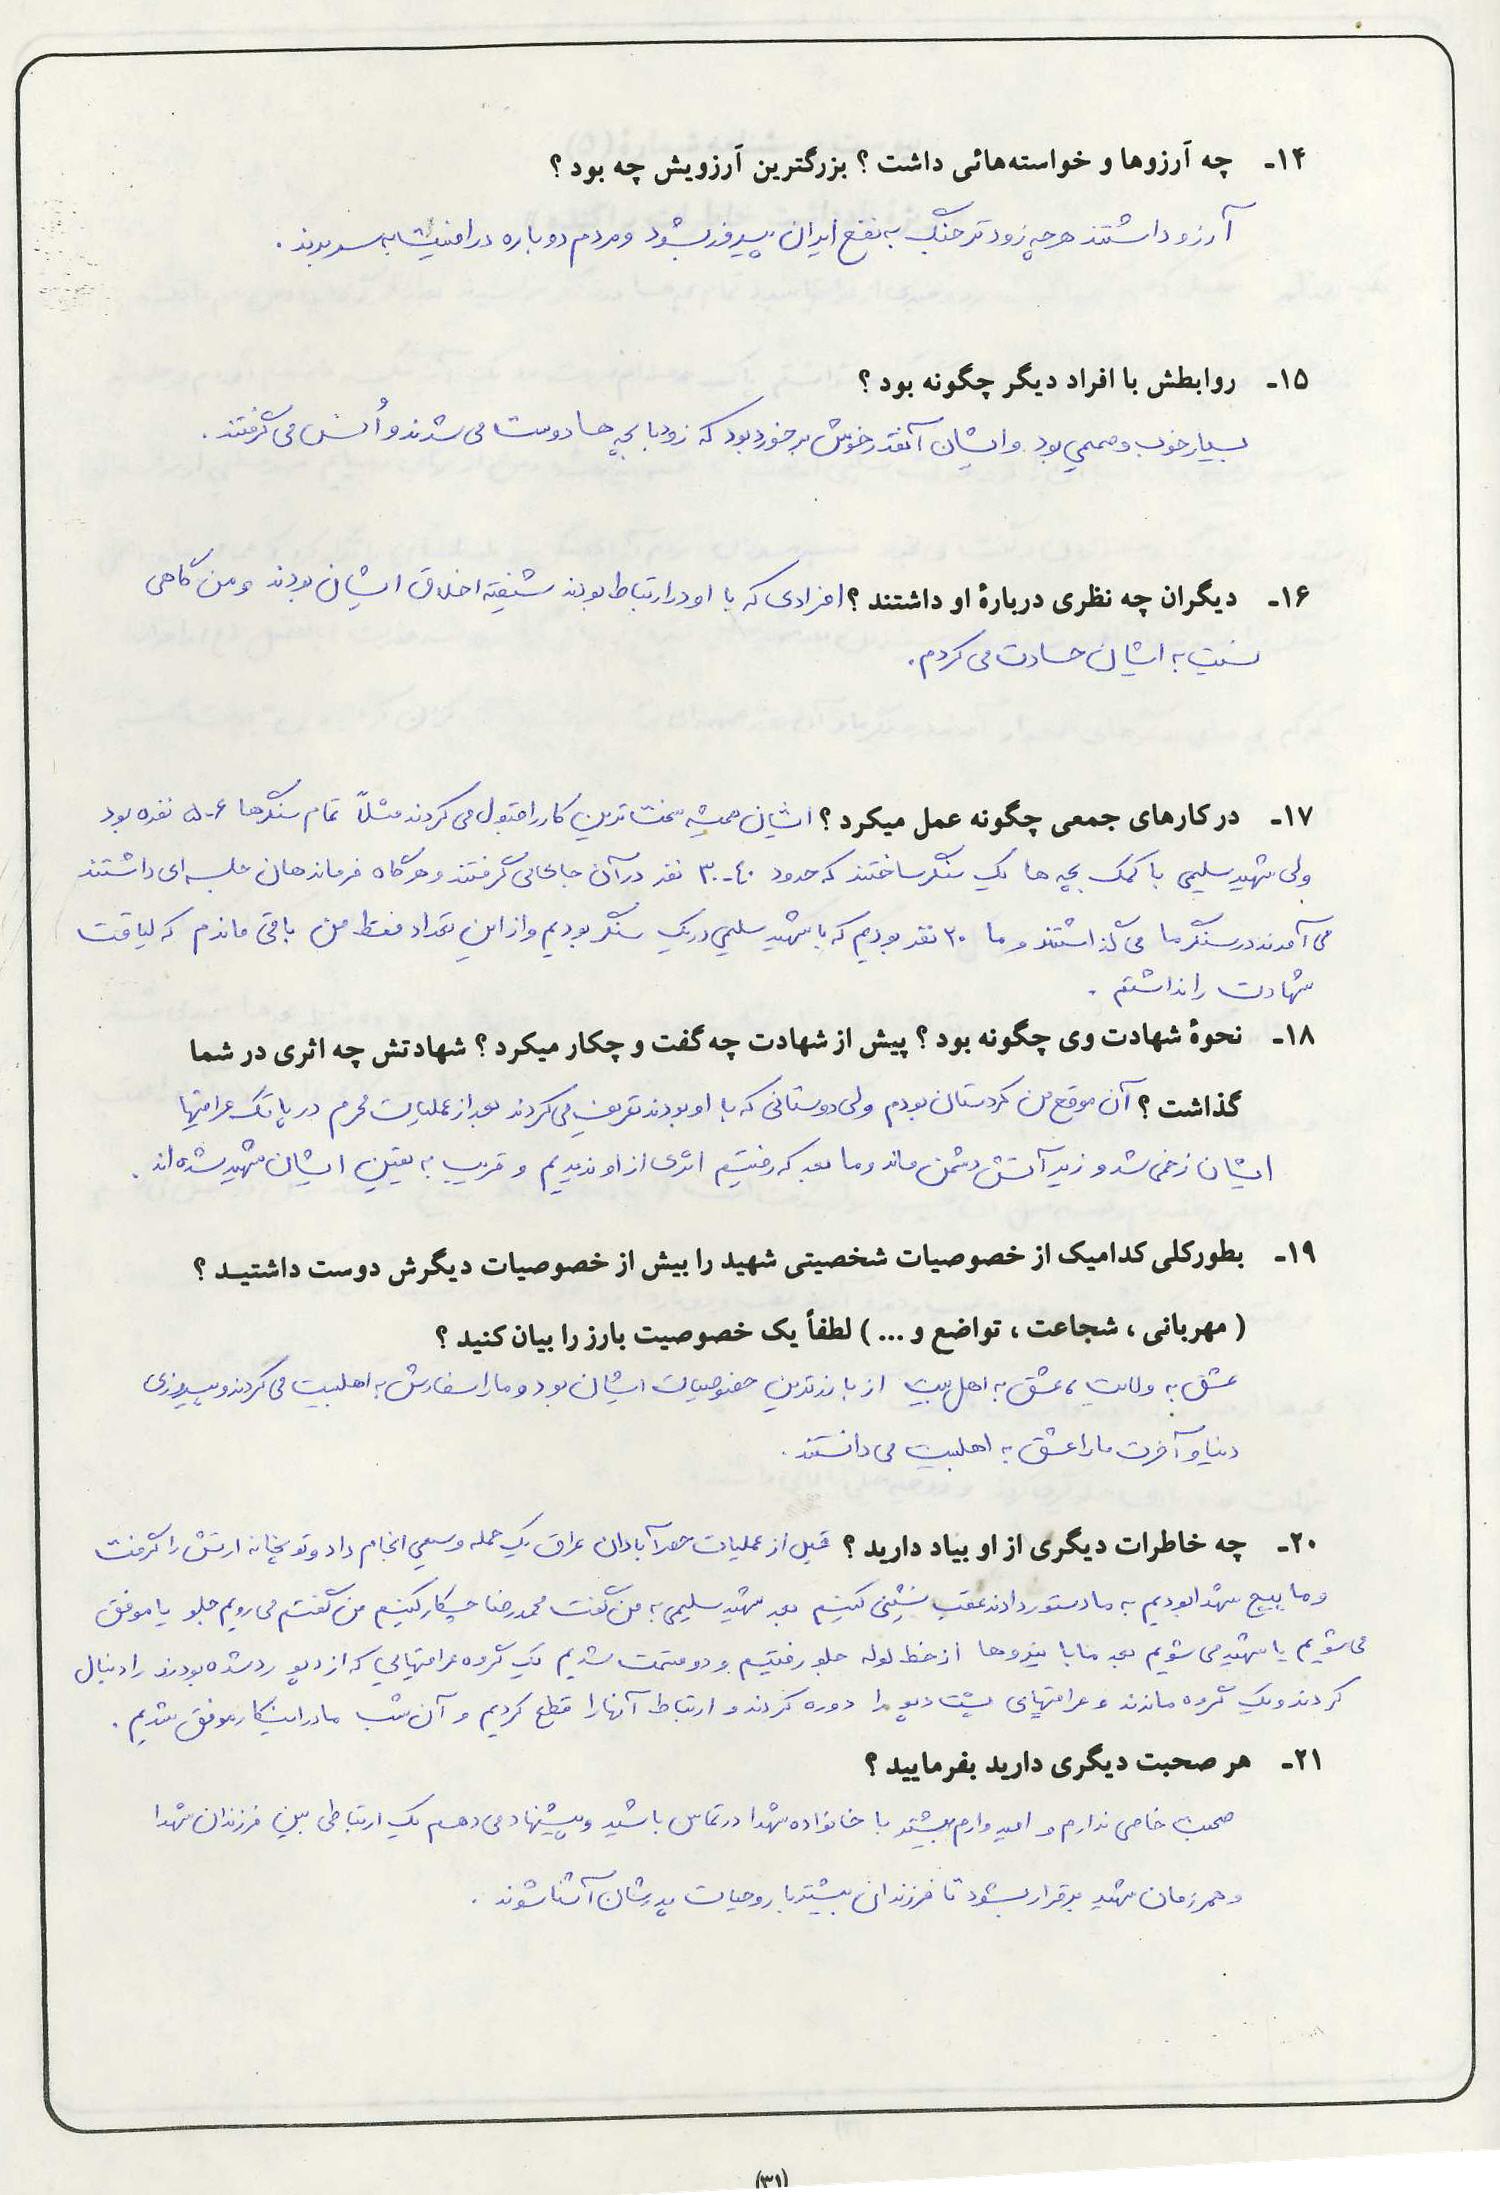 ۱۴ـ چه آرزوها و خواسته‌هائی داشت ؟ بزرگترین آرزویش چه بود ؟
آرزو داشتند هرچه زودتر جنگ به نفع ایران پیروز بشود و مردم دوباره در امنیت به سر برند .
۱۵ـ روابطش با افراد دیگر چگونه بود ؟
بسیار خوب و صمیمی بود و ایشان آنقدر خوش برخورد بود که زود با بچه ها دوست می شدند و اُنس می گرفتند .
۱۶ـ دیگران چه نظری دربارهٔ او داشتند ؟ افرادی که با او در ارتباط بودند شیفته اخلاق ایشان بودند و من گاهی
نسبت به ایشان حسادت می کردم .
۱۷ـ در کارهای جمعی چگونه عمل میکرد ؟ ایشان همیشه سخت ترین کار را قبول می کردند مثلاً تمام سنگرها ۶-۵ نفره بود
ولی شهید سلیمی با کمک بچه ها یک سنگر ساختند که حدود ۴۰-۳۰ نفر در آن جا می گرفتند و هر گاه فرماندهان جلسه ای داشتند
می آمدند در سنگر ما می گذاشتند و ما ۲۰ نفر بودیم که با شهید سلیمی در یک سنگر بودیم و از این تعداد فقط من باقی ماندم که لیاقت
شهادت را نداشتم .
۱۸ـ نحوهٔ شهادت وی چگونه بود ؟ پیش از شهادت چه گفت و چکار میکرد ؟ شهادتش چه اثری در شما
گذاشت ؟ آن موقع من کردستان بودم ولی دوستانی که با او بودند تعریف می کردند بعد از عملیات محرم در پاتک عراقیها
ایشان زخمی شد و زیر آتش دشمن ماند و ما بعد که رفتیم اثری از او ندیدیم و قریب به یقین ایشان شهید شده اند .
۱۹ـ بطورکلی کدامیک از خصوصیات شخصیتی شهید را بیش از خصوصیات دیگرش دوست داشتید ؟
( مهربانی ، شجاعت ، تواضع و ... ) لطفاً یک خصوصیت بارز را بیان کنید ؟
عشق به ولایت ، عشق به اهل بیت از بارزترین خصوصیات ایشان بود و ما را سفارش به اهلبیت می کردند و پیروزی
دنیا و آخرت ما را عشق به اهلبیت می دانستند .
۲۰ـ چه خاطرات دیگری از او بیاد دارید ؟ قبل از عملیات حصر آبادان عراق یک حمله وسیعی انجام داد و توپخانه ارتش را گرفت
و ما بسیج شهدا بودیم به ما دستور دادند عقب نشینی کنیم بعد شهید سلیمی به من گفت محمدرضا چکار کنیم من گفتم می رویم جلو یا موفق
می شویم یا شهید می شویم بعد ما با نیروها از خط لوله جلو رفتیم و دو قسمت شدیم یک گروه عراقیهایی که از دپو رد شده بودند را دنبال
کردند و یک گروه ماندند و عراقیهای پشت دپو را دوره کردند و ارتباط آنها را قطع کردیم و آن شب ما در اینکار موفق شدیم .
۲۱ـ هر صحبت دیگری دارید بفرمایید ؟
صحبت خاصی ندارم و امیدوارم بیشتر با خانواده شهدا در تماس باشید و پیشنهاد می دهم یک ارتباطی بین فرزندان شهدا
و همرزمان شهید برقرار بشود تا فرزندان بیشتر با روحیات پدرشان آشنا شوند .
(۳۱)